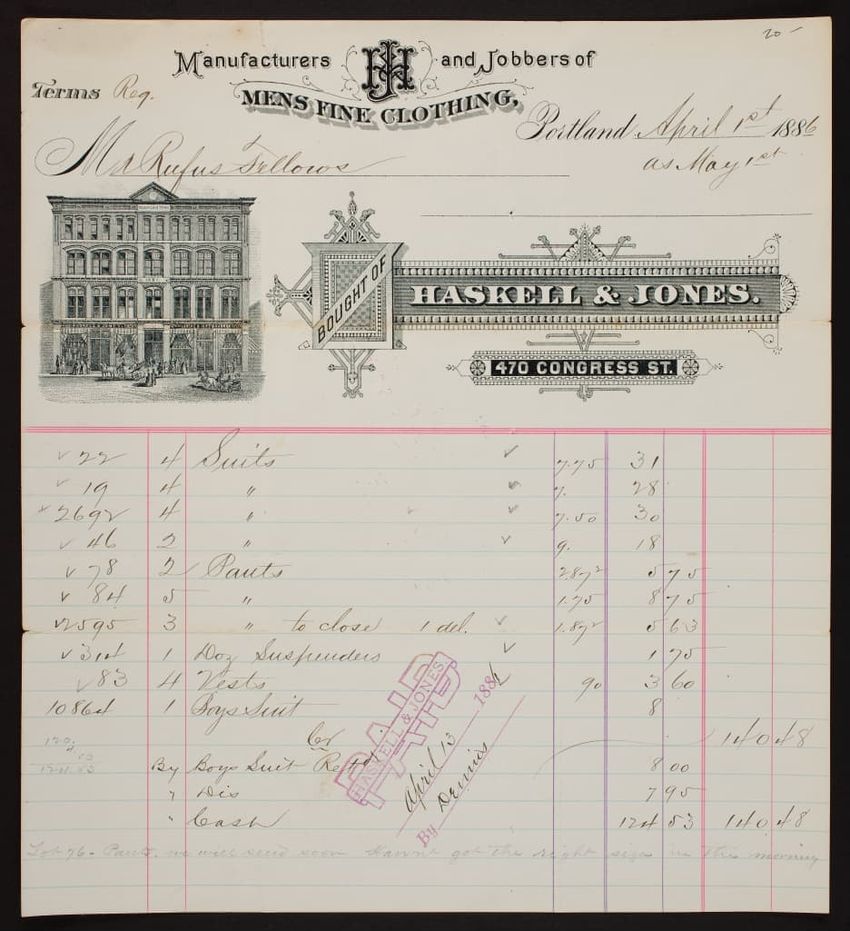 20-
Manufacturers HJ and Jobbers of
Terms Reg.
MENS FINE CLOTHING,
Portland April 1st 1886
Mr Rufus Fellows
as May 1st
BOUGHT OF
HASKELL & JONES.
470 CONGRESS ST.
22 4 Suits 7.75 31
19 4 " 7. 28
2692 4 " 7.50 30
46 2 " 9. 18
78 2 Pants 2.87½ 5 75
84 5 " 1.75 8 75
2595 3 " to close 1 del. 1.87½ 5 63
314 1 Doz Suspenders 1 75
83 4 Vests 90 3 60
10864 1 Boys Suit 8
Cr 140 48
By Boys Suit Retd 8 00
" Dis 7 95
" Cash 124 53 140 48
PAID
HASKELL & JONES
April 13 1886
By Dennis
Lot 76 - Pants. we will send soon Havnt got the right sizes in this morning